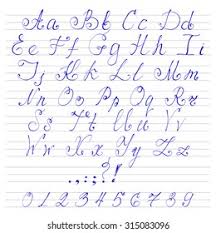 Aa Bb Cc Dd
Ee Ff Gg Hh Ii
Jj Kk Ll Mm
Nn Oo Pp Qq Rr
Ss Tt Uu Vv
Ww Xx Yy Zz
.,:;!?
0 1 2 3 4 5 6 7 8 9
shutterstock.com · 315083096